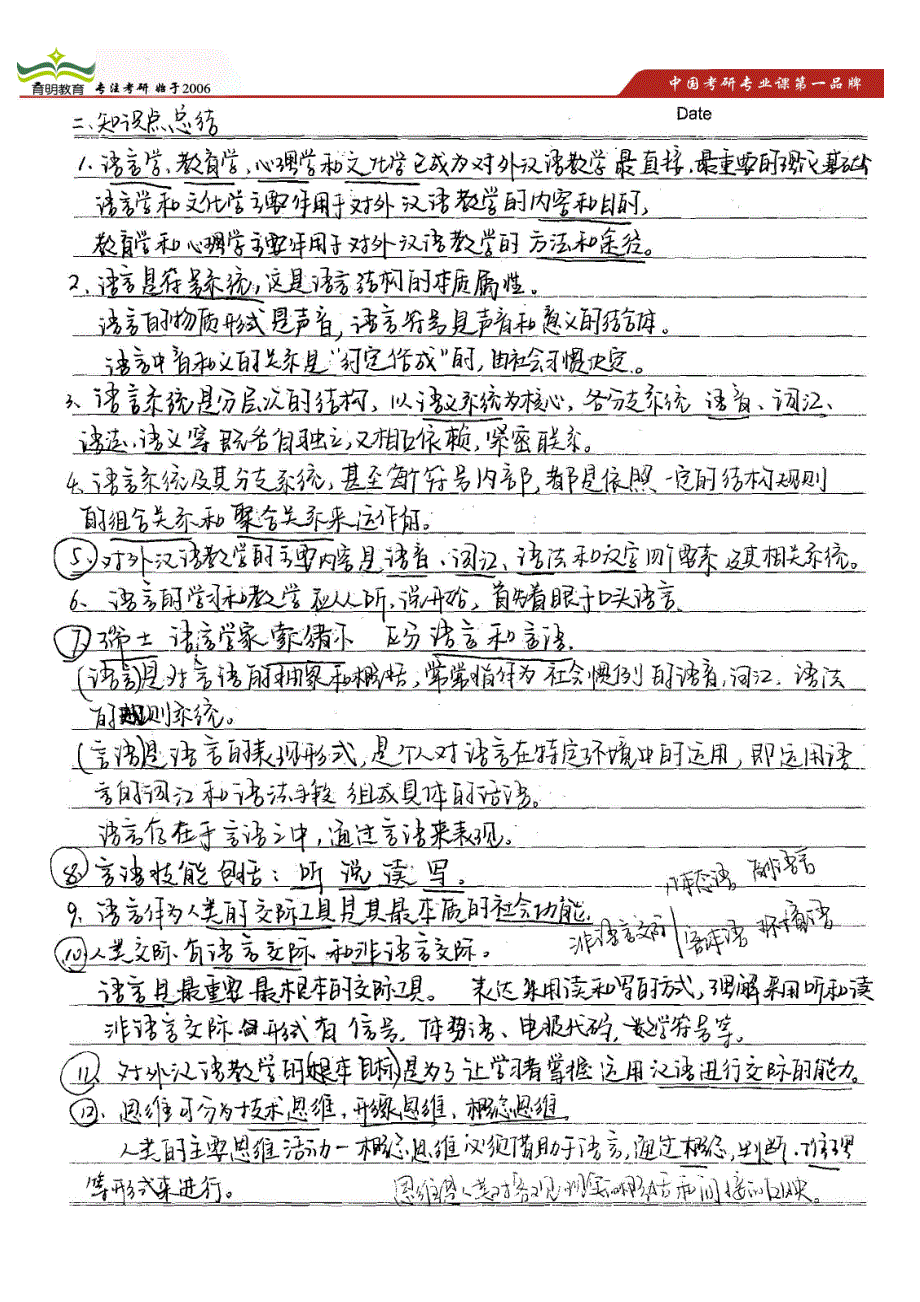 育明教育 专注考研 始于2006
中国考研专业课第一品牌
Date
二、知识点总结
1. 语言学、教育学、心理学和文化学已成为对外汉语教学最直接、最重要的理论基础
语言学和文化学主要作用于对外汉语教学的内容和目的,
教育学和心理学主要作用于对外汉语教学的方法和途径。
2、语言是符号系统,这是语言结构的本质属性。
语言的物质形式是声音,语言符号是声音和意义的结合体。
语言中音和义的关系是“约定俗成”的,由社会习惯决定。
3、语言系统是分层次的结构,以语义系统为核心,各分支系统 语音、词汇、
语法、语义等既各自独立,又相互依赖,紧密联系。
4、语言系统及其分支系统,甚至每个符号内部,都是依照一定的结构规则
的组合关系和聚合关系来运作的。
⑤、对外汉语教学的主要内容是语音、词汇、语法和汉字四个要素及其相关系统。
6、语言的学习和教学应从听,说开始,首先着眼于口头语言.
⑦瑞士 语言学家 索绪尔 区分 语言和言语.
(语言)是对言语的抽象和概括,常常指作为社会惯例的语音,词汇、语法
的规则系统。
(言语)是语言的表现形式,是个人对语言在特定环境中的运用,即运用语
言的词汇和语法手段组成具体的话语。
语言存在于言语之中,通过言语来表现。
⑧言语技能包括:听 说 读 写。
体态语 副语言
9、语言作为人类的交际工具是其最本质的社会功能.
非语言交际 客体语 环境语
⑩人类交际有语言交际和非语言交际。
语言是最重要最根本的交际工具。 表达采用读和写的方式,理解采用听和读
非语言交际的形式有信号,体势语、电报代码,数学符号等。
⑪、对外汉语教学的(根本目标)是为了让学习者掌握运用汉语进行交际的能力。
⑫、思维可分为技术思维,形象思维,概念思维.
人类的主要思维活动—概念思维必须借助于语言,通过概念,判断、推理
等形式来进行。 思维是人类对客观现实的概括和间接的反映。